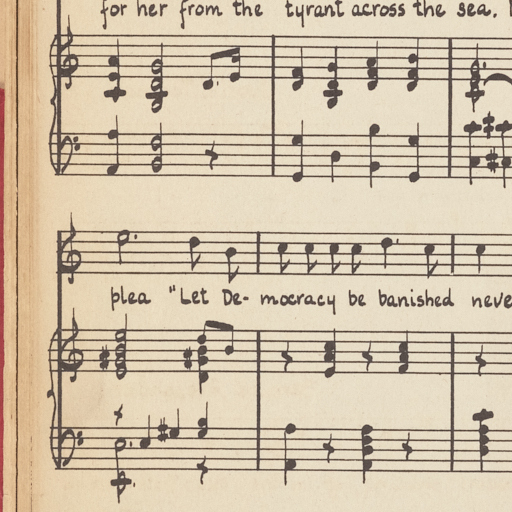 for her from the tyrant across the sea.
plea "Let De- mocracy be banished neve